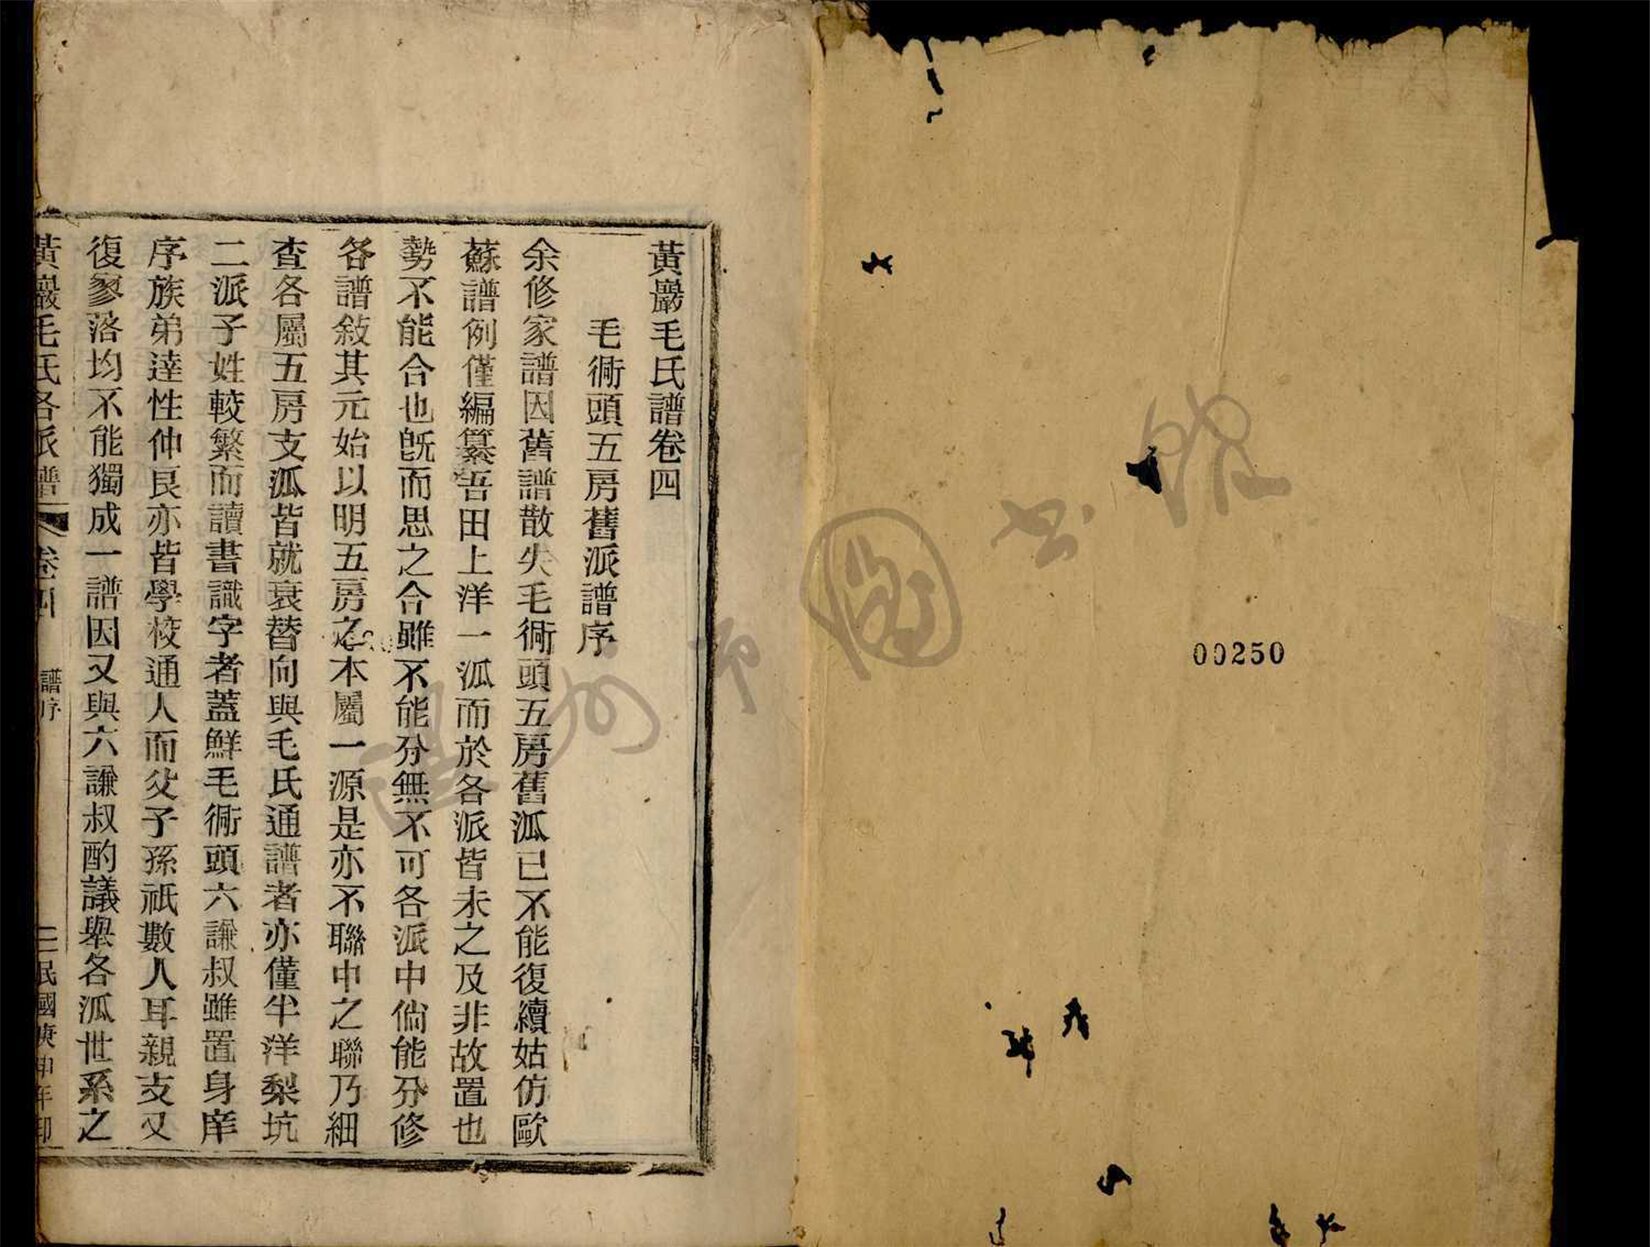 黃巖毛氏譜卷四
毛衕頭五房舊派譜序
余修家譜因舊譜散失毛衕頭五房舊泒已不能復續姑仿歐
蘇譜例僅編纂吾田上洋一泒而於各派皆未之及非故置也
勢不能合也旣而思之合雖不能分無不可各派中倘能分修
各譜敍其元始以明五房之本屬一源是亦不聯中之聯乃細
查各屬五房支泒皆就衰替向與毛氏通譜者亦僅半洋梨坑
二派子姓較繁而讀書識字者蓋鮮毛衕頭六謙叔雖置身庠
序族弟達性仲良亦皆學校通人而父子孫祇數人耳親支又
復寥落均不能獨成一譜因又與六謙叔酌議舉各泒世系之
黃巖毛氏各派譜 卷四 譜序 一 民國庚申年印
00250